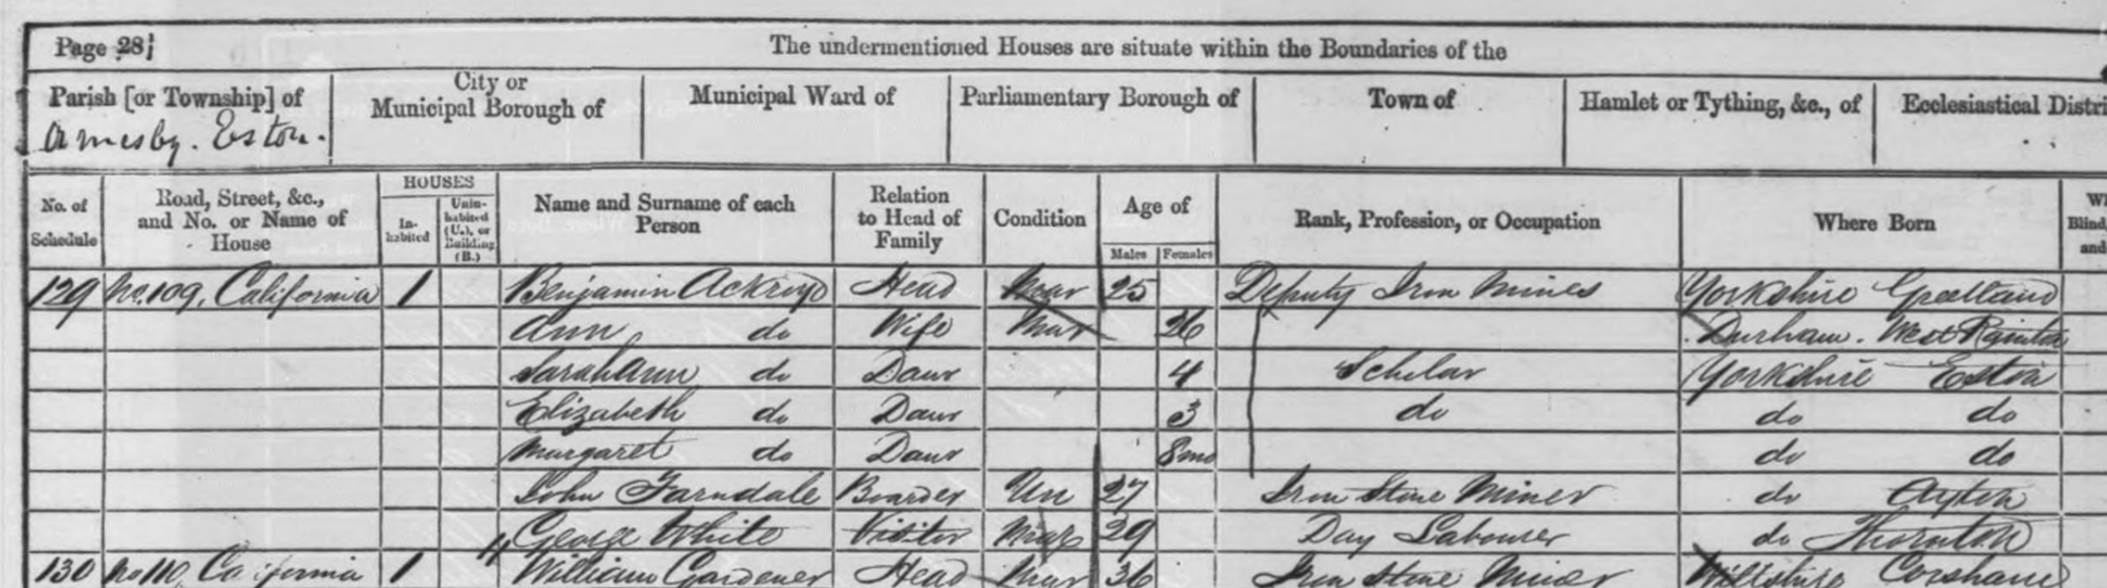 Page 28
The undermentioned Houses are situate within the Boundaries of the
Parish [or Township] of
City or Municipal Borough of
Municipal Ward of
Parliamentary Borough of
Town of
Hamlet or Tything, &c., of
Ecclesiastical Distri
Ormesby. Eston.
No. of Schedule
Road, Street, &c., and No. or Name of House
HOUSES
In-habited
Unin-habited (U.), or Building (B.)
Name and Surname of each Person
Relation to Head of Family
Condition
Age of
Males
Females
Rank, Profession, or Occupation
Where Born
Blind,
and
129 No. 109, California 1 Benjamin Ackroyd Head Mar 25 Deputy Iron Mines Yorkshire Greetland
Ann do Wife Mar 26 Durham. West Rainton
Sarah Ann do Daur 4 Scholar Yorkshire Eston
Elizabeth do Daur 3 do do do
Margaret do Daur 8 mo do do
John Farndale Boarder Un 27 Iron Stone Miner do Ayton
George White Visitor Mar 29 Day Labourer do Thornton
130 No 110, California 1 William Gardener Head Mar 36 Iron Stone Miner Wiltshire Corsham